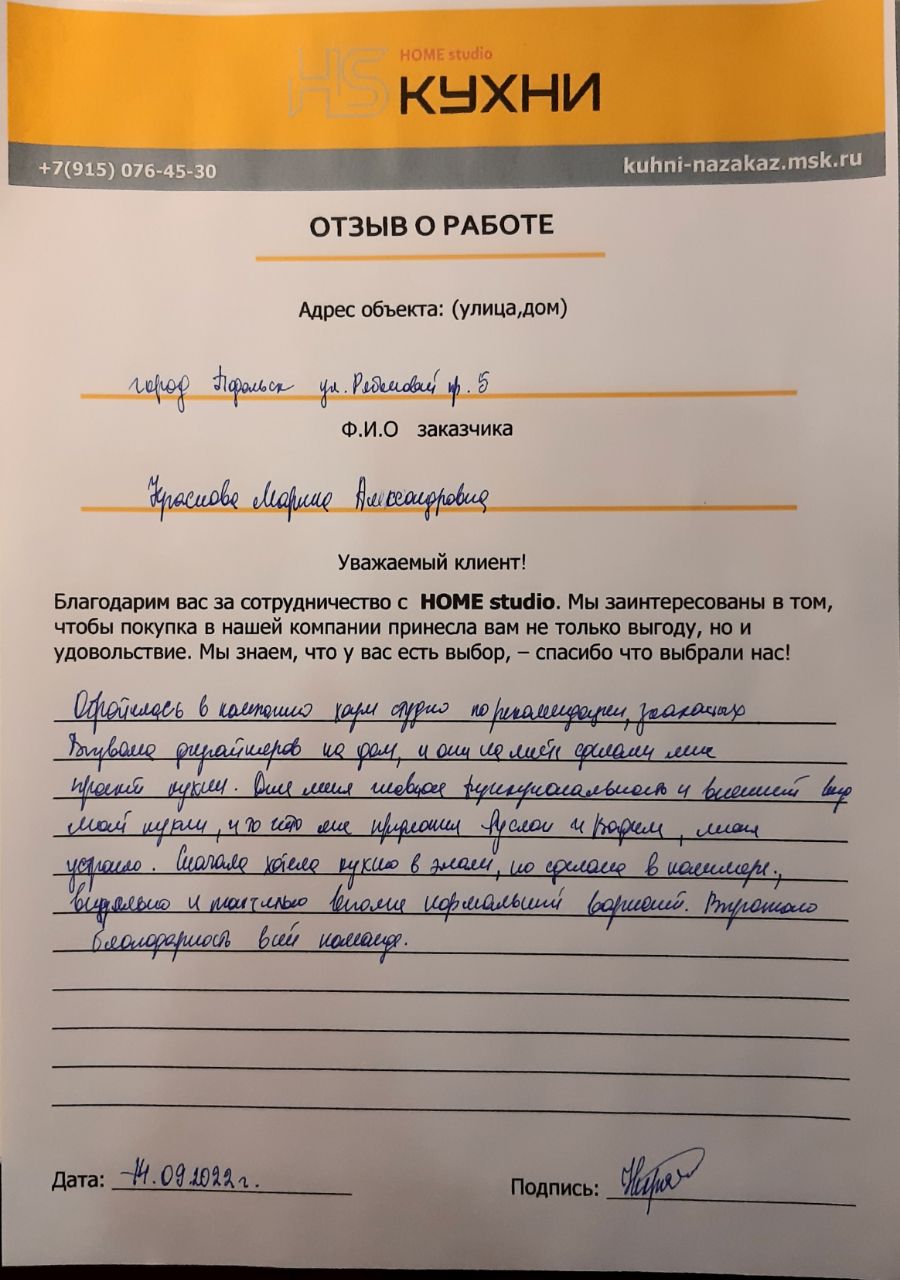 HS
HOME studio
КУХНИ
+7(915) 076-45-30
kuhni-nazakaz.msk.ru
ОТЗЫВ О РАБОТЕ
Адрес объекта: (улица,дом)
город Подольск ул. Рябиновый пр. 5
Ф.И.О заказчика
Краснова Марина Александровна
Уважаемый клиент!
Благодарим вас за сотрудничество с HOME studio. Мы заинтересованы в том,
чтобы покупка в нашей компании принесла вам не только выгоду, но и
удовольствие. Мы знаем, что у вас есть выбор, – спасибо что выбрали нас!
Обратилась в компанию хоум студио по рекомендации, знакомых
Вызвала дизайнеров на дом, и они на месте сделали мне
проект кухни. Для меня главное функциональность и внешний вид
моей кухни, и то что мне предложили Руслан и Вадим, меня
устроило. Сначала хотела кухню в эмали, но сделала в полимере.,
визуально и тактильно вполне нормальный вариант. Выражаю
благодарность всей команде.
Дата: 14.09.2022г.
Подпись: